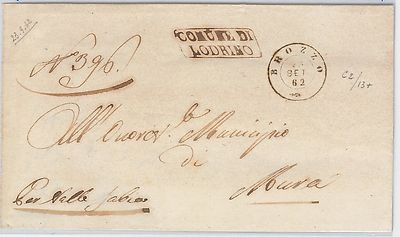 COMUNE DI
LODRINO
N.º 396.
BROZZO
SET
62
C2/
13+
All'Onorev.le Municipio
di
Mura
Per Valle Sabbia